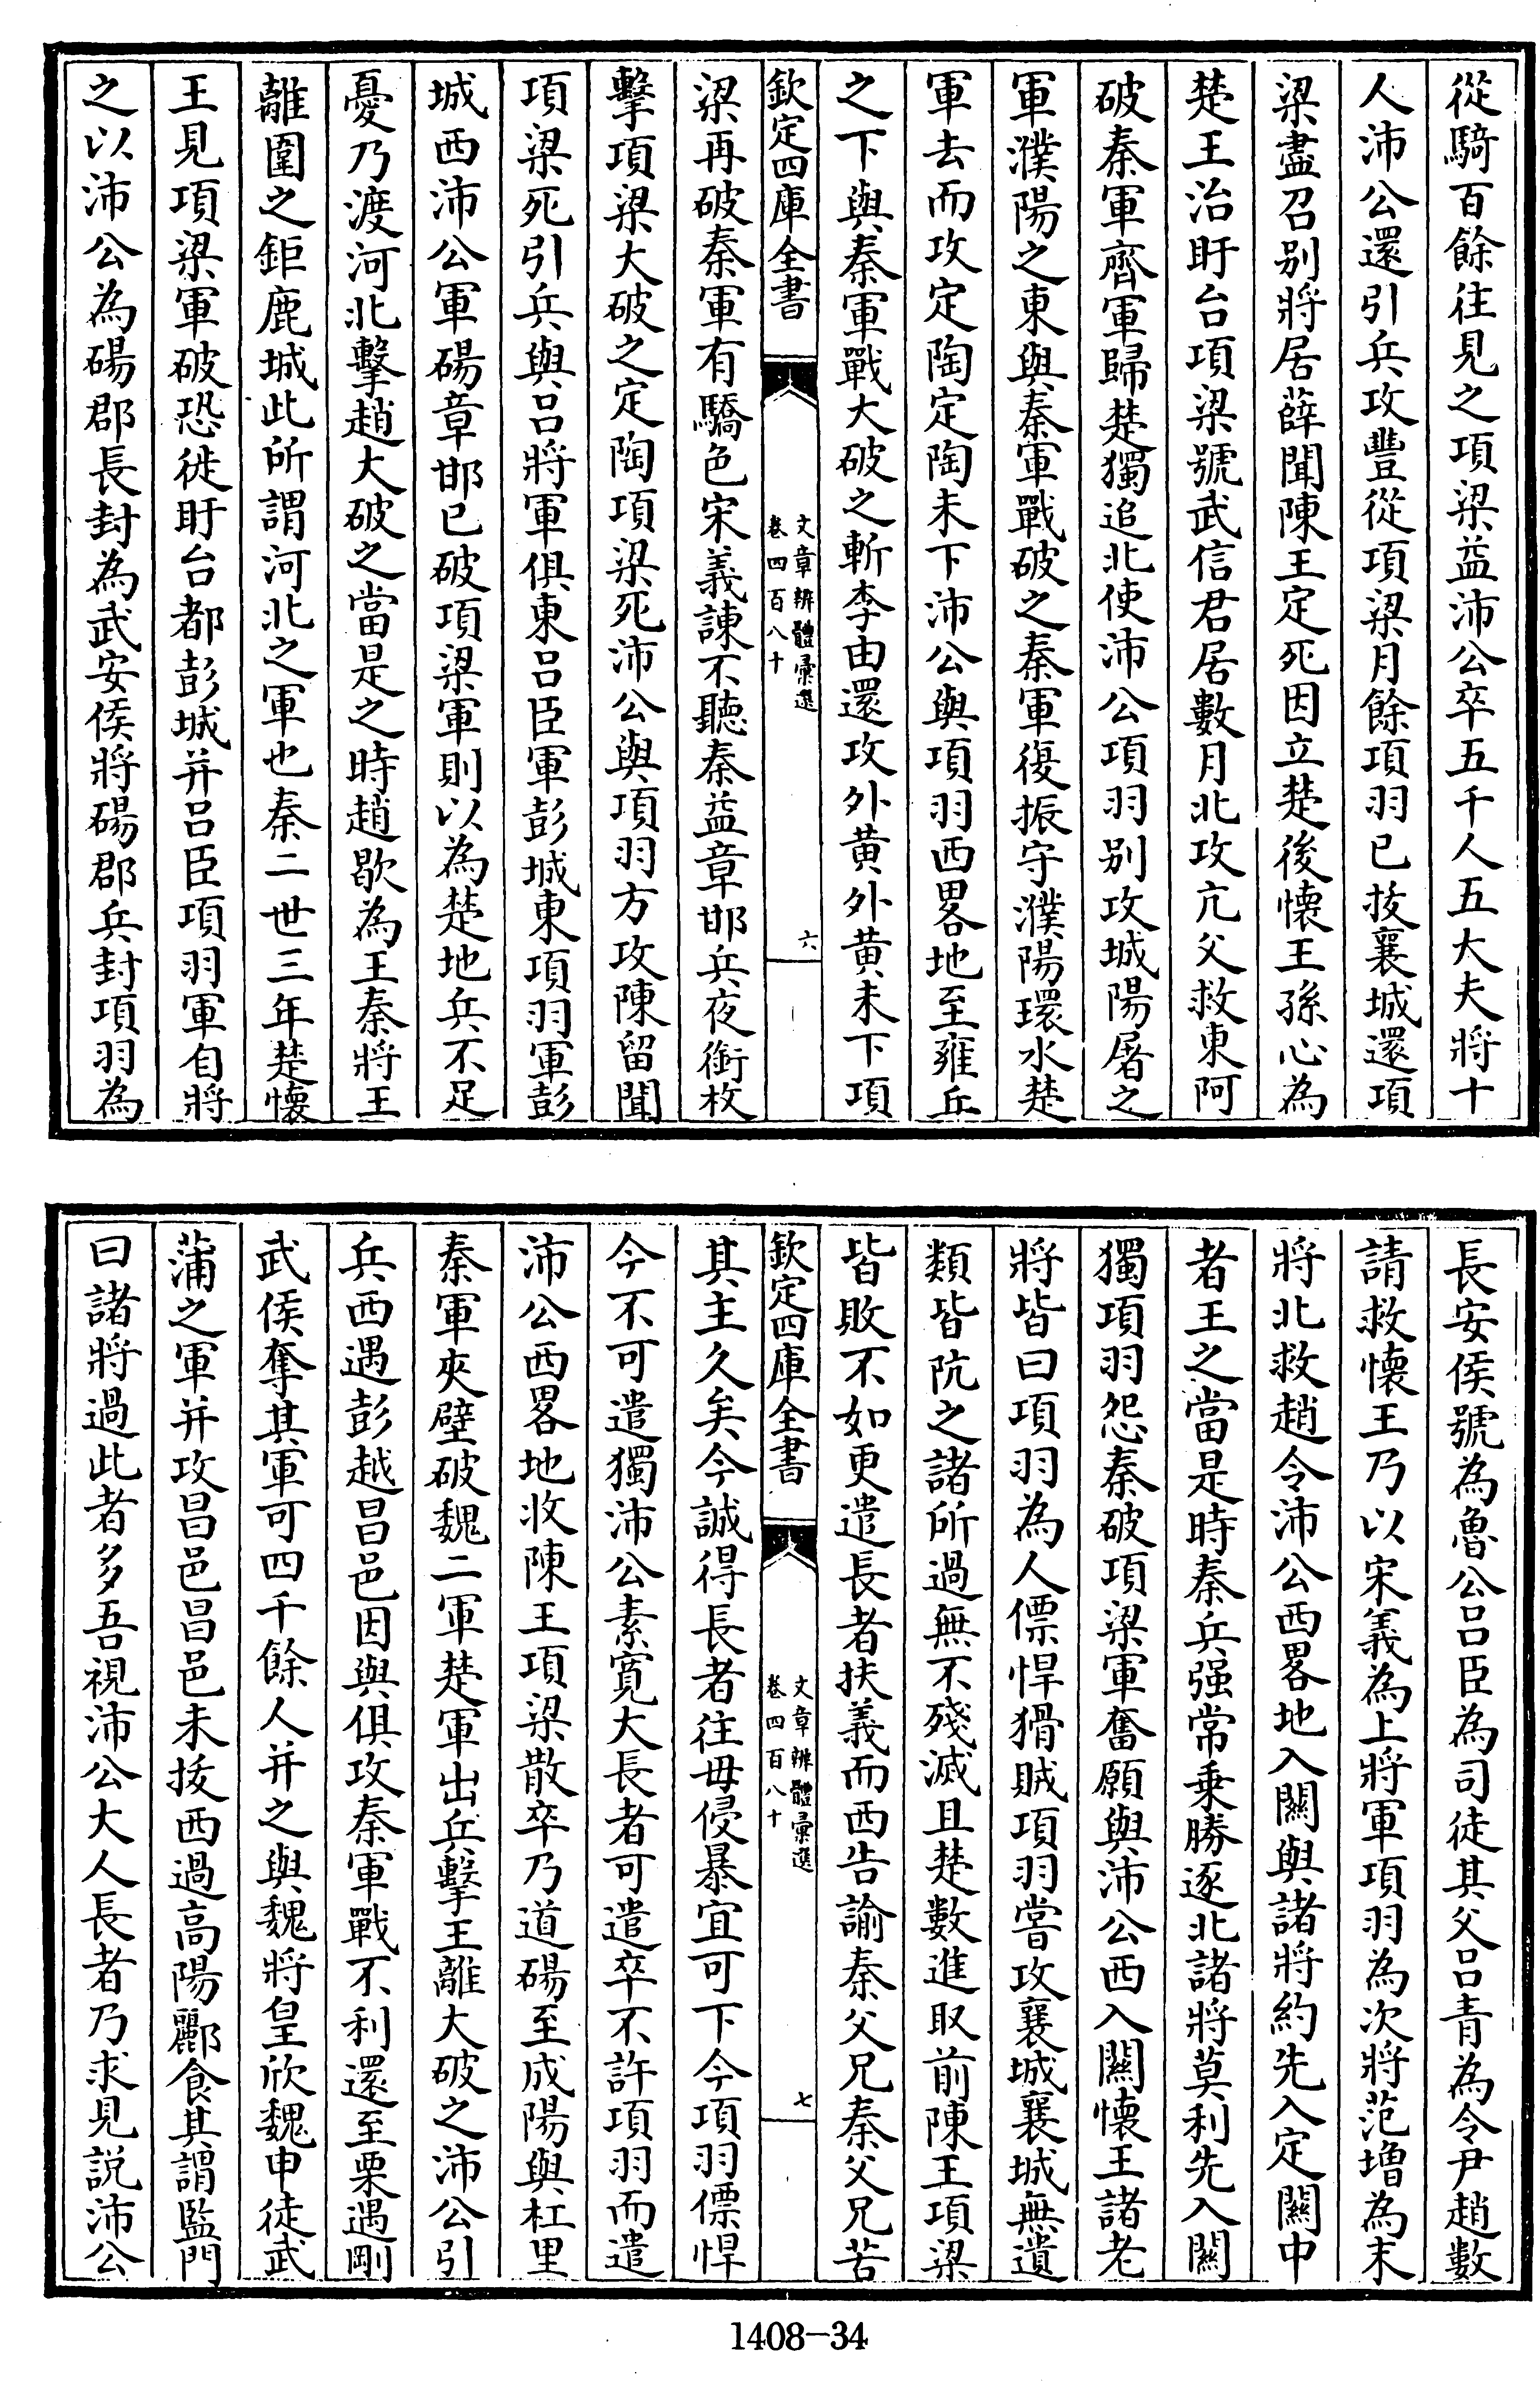 從騎百餘往見之項梁益沛公卒五千人五大夫將十
人沛公還引兵攻豐從項梁月餘項羽已拔襄城還項
梁盡召别將居薛聞陳王定死因立楚後懐王孫心為
楚王治盱台項梁號武信君居數月北攻亢父救東阿
破秦軍齊軍歸楚獨追北使沛公項羽别攻城陽屠之
軍濮陽之東與秦軍戰破之秦軍復振守濮陽環水楚
軍去而攻定陶定陶未下沛公與項羽西畧地至雍丘
之下與秦軍戰大破之斬李由還攻外黄外黄未下項
欽定四庫全書
文章辨體彚選
卷四百八十
六
梁再破秦軍有驕色宋義諫不聽秦益章邯兵夜銜枚
擊項梁大破之定陶項梁死沛公與項羽方攻陳留聞
項梁死引兵與吕將軍俱東吕臣軍彭城東項羽軍彭
城西沛公軍碭章邯已破項梁軍則以為楚地兵不足
憂乃渡河北擊趙大破之當是之時趙歇為王秦將王
離圍之鉅鹿城此所謂河北之軍也秦二世三年楚懐
王見項梁軍破恐徙盱台都彭城并吕臣項羽軍自將
之以沛公為碭郡長封為武安侯將碭郡兵封項羽為
長安侯號為魯公吕臣為司徒其父吕青為令尹趙數
請救懐王乃以宋義為上將軍項羽為次將范增為末
將北救趙令沛公西畧地入關與諸將約先入定關中
者王之當是時秦兵强常乗勝逐北諸將莫利先入關
獨項羽怨秦破項梁軍奮願與沛公西入關懐王諸老
將皆曰項羽為人僄悍猾賊項羽嘗攻襄城襄城無遺
類皆阬之諸所過無不殘滅且楚數進取前陳王項梁
皆敗不如更遣長者扶義而西告諭秦父兄秦父兄苦
欽定四庫全書
文章辨體彚選
卷四百八十
七
其主久矣今誠得長者往毋侵暴宜可下今項羽僄悍
今不可遣獨沛公素寛大長者可遣卒不許項羽而遣
沛公西畧地收陳王項梁散卒乃道碭至成陽與杠里
秦軍夾壁破魏二軍楚軍出兵擊王離大破之沛公引
兵西遇彭越昌邑因與俱攻秦軍戰不利還至栗遇剛
武侯奪其軍可四千餘人并之與魏將皇欣魏申徒武
蒲之軍并攻昌邑昌邑未拔西過高陽酈食其謂監門
曰諸將過此者多吾視沛公大人長者乃求見説沛公
1408-34